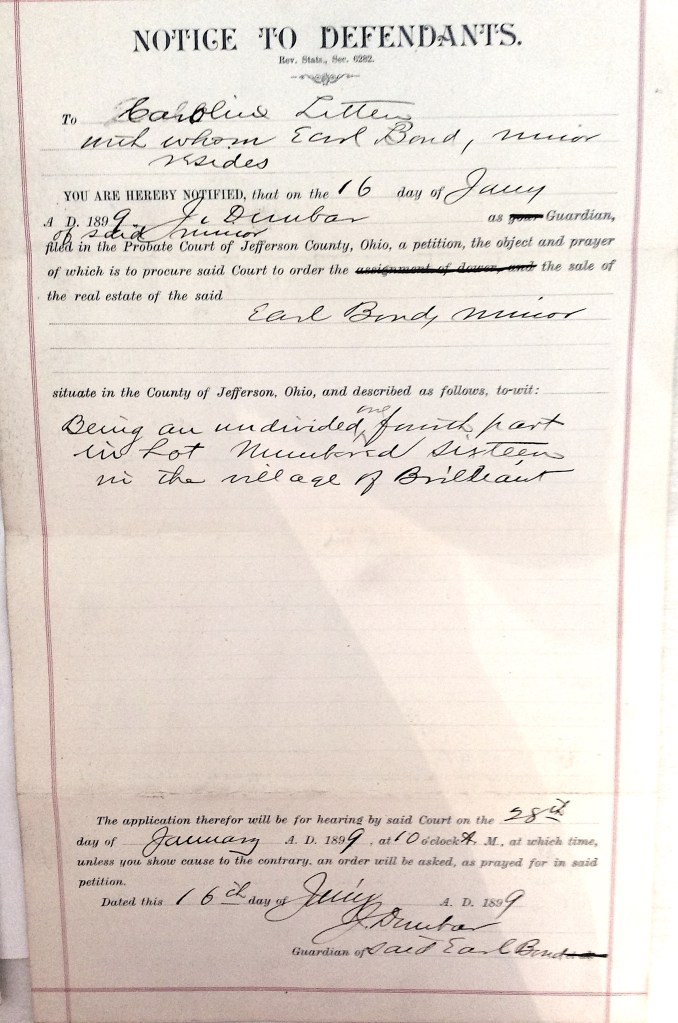 NOTICE TO DEFENDANTS.
Rev. Stats., Sec. 6282.
To Caroline Litten
with whom Earl Bond, minor
resides
YOU ARE HEREBY NOTIFIED, that on the 16 day of Jany
A. D. 1899 J. Dunbar as your Guardian,
of said minor
filed in the Probate Court of Jefferson County, Ohio, a petition, the object and prayer
of which is to procure said Court to order the assignment of dower, and the sale of
the real estate of the said
Earl Bond, minor
situate in the County of Jefferson, Ohio, and described as follows, to-wit:
Being an undivided one fourth part
in Lot Numbered Sixteen
in the village of Brilliant
The application therefor will be for hearing by said Court on the 28th
day of January A. D. 1899, at 10 o'clock A. M., at which time,
unless you show cause to the contrary, an order will be asked, as prayed for in said
petition.
Dated this 16th day of Jany A. D. 1899
J. Dunbar
Guardian of said Earl Bond